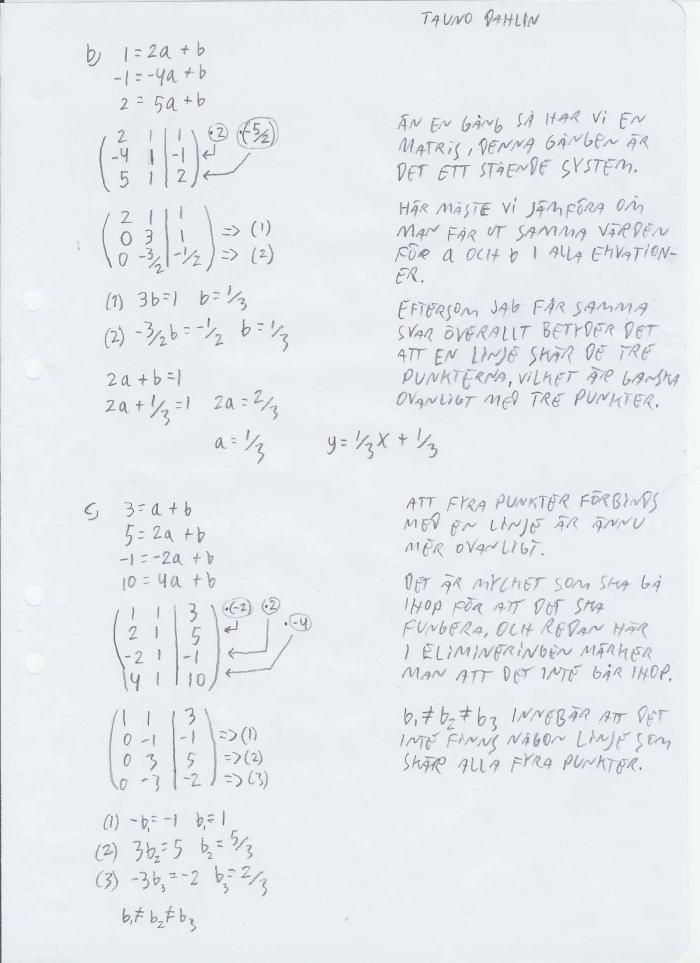 TAUNO DAHLIN
b) 1 = 2a + b
-1 = -4a + b
2 = 5a + b
2 1 | 1 ·2 ·(-5/2)
-4 1 | -1
5 1 | 2
ÄN EN GÅNG SÅ HAR VI EN
MATRIS, DENNA GÅNGEN ÄR
DET ETT STÅENDE SYSTEM.
2 1 | 1
0 3 | 1 => (1)
0 -3/2 | -1/2 => (2)
HÄR MÅSTE VI JÄMFÖRA OM
MAN FÅR UT SAMMA VÄRDEN
FÖR a OCH b I ALLA EKVATION-
ER.
(1) 3b=1 b=1/3
(2) -3/2b = -1/2 b=1/3
2a+b=1
2a+1/3=1 2a=2/3
a=1/3 y=1/3x + 1/3
EFTERSOM JAG FÅR SAMMA
SVAR ÖVERALLT BETYDER DET
ATT EN LINJE SKÄR DE TRE
PUNKTERNA, VILKET ÄR GANSKA
OVANLIGT MED TRE PUNKTER.
c) 3 = a + b
5 = 2a + b
-1 = -2a + b
10 = 4a + b
ATT FYRA PUNKTER FÖRBINDS
MED EN LINJE ÄR ÄNNU
MER OVANLIGT.
1 1 | 3 ·(-2) ·2 ·-4
2 1 | 5
-2 1 | -1
4 1 | 10
DET ÄR MYCKET SOM SKA GÅ
IHOP FÖR ATT DET SKA
FUNGERA, OCH REDAN HÄR
I ELIMINERINGEN MÄRKER
MAN ATT DET INTE GÅR IHOP.
1 1 | 3
0 -1 | -1 => (1)
0 3 | 5 => (2)
0 -3 | -2 => (3)
b₁ ≠ b₂ ≠ b₃ INNEBÄR ATT DET
INTE FINNS NÅGON LINJE SOM
SKÄR ALLA FYRA PUNKTER.
(1) -b₁ = -1 b₁ = 1
(2) 3b₂ = 5 b₂ = 5/3
(3) -3b₃ = -2 b₃ = 2/3
b₁ ≠ b₂ ≠ b₃